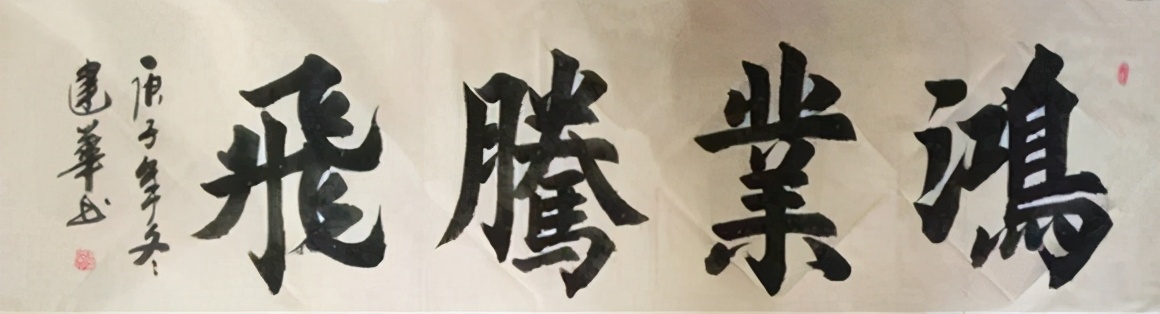 鴻業騰飛
庚子年冬
建華书